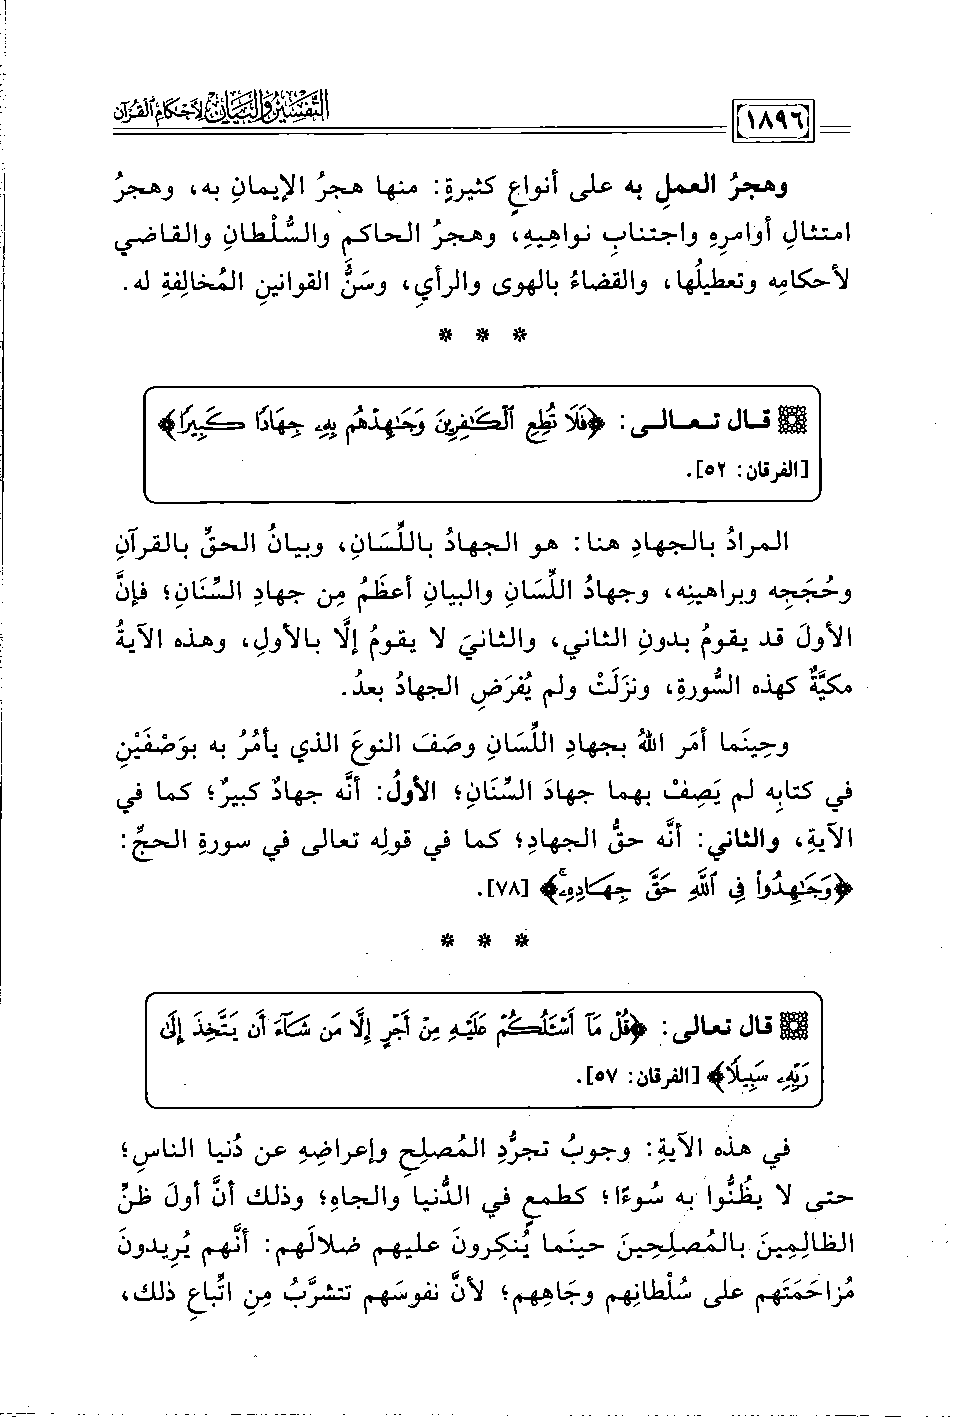 ١٨٩٦
التفسير والبيان لأحكام القرآن
وهجرُ العملِ به على أنواعٍ كثيرةٍ: منها هجرُ الإيمانِ به، وهجرُ
امتثالِ أوامرِهِ واجتنابِ نواهِيهِ، وهجرُ الحاكمِ والسُّلْطانِ والقاضي
لأحكامِه وتعطيلُها، والقضاءُ بالهوى والرأيِ، وسَنُّ القوانينِ المُخالِفةِ له.
* * *
قال تعالى: ﴿فَلَا تُطِعِ ٱلْكَٰفِرِينَ وَجَٰهِدْهُم بِهِۦ جِهَادًا كَبِيرًا﴾
[الفرقان: ٥٢].
المرادُ بالجهادِ هنا: هو الجهادُ باللِّسَانِ، وبيانُ الحقِّ بالقرآنِ
وحُجَجِه وبراهينِه، وجهادُ اللِّسَانِ والبيانِ أعظَمُ مِن جهادِ السِّنَانِ؛ فإنَّ
الأولَ قد يقومُ بدونِ الثاني، والثانيَ لا يقومُ إلَّا بالأولِ، وهذه الآيةُ
مكيَّةٌ كهذه السُّورةِ، ونزَلَتْ ولم يُفرَضِ الجهادُ بعدُ.
وحِينَما أمَر اللهُ بجهادِ اللِّسَانِ وصَفَ النوعَ الذي يأمُرُ به بوَصْفَيْنِ
في كتابِه لم يَصِفْ بهما جهادَ السِّنَانِ؛ الأولُ: أنَّه جهادٌ كبيرٌ؛ كما في
الآيةِ، والثاني: أنَّه حقُّ الجهادِ؛ كما في قولِه تعالى في سورةِ الحجِّ:
﴿وَجَٰهِدُوا۟ فِى ٱللَّهِ حَقَّ جِهَادِهِۦ﴾ [٧٨].
* * *
قال تعالى: ﴿قُلْ مَآ أَسْـَٔلُكُمْ عَلَيْهِ مِنْ أَجْرٍ إِلَّا مَن شَآءَ أَن يَتَّخِذَ إِلَىٰ
رَبِّهِۦ سَبِيلًا﴾ [الفرقان: ٥٧].
في هذه الآيةِ: وجوبُ تجرُّدِ المُصلِحِ وإعراضِهِ عن دُنيا الناسِ؛
حتى لا يظُنُّوا به سُوءًا؛ كطمعٍ في الدُّنيا والجاهِ؛ وذلك أنَّ أولَ ظنِّ
الظالِمِينَ بالمُصلِحِينَ حينَما يُنكِرونَ عليهم ضلالَهم: أنَّهم يُرِيدونَ
مُزاحَمَتَهم على سُلْطانِهم وجَاهِهم؛ لأنَّ نفوسَهم تتشرَّبُ مِن اتِّباعِ ذلك،